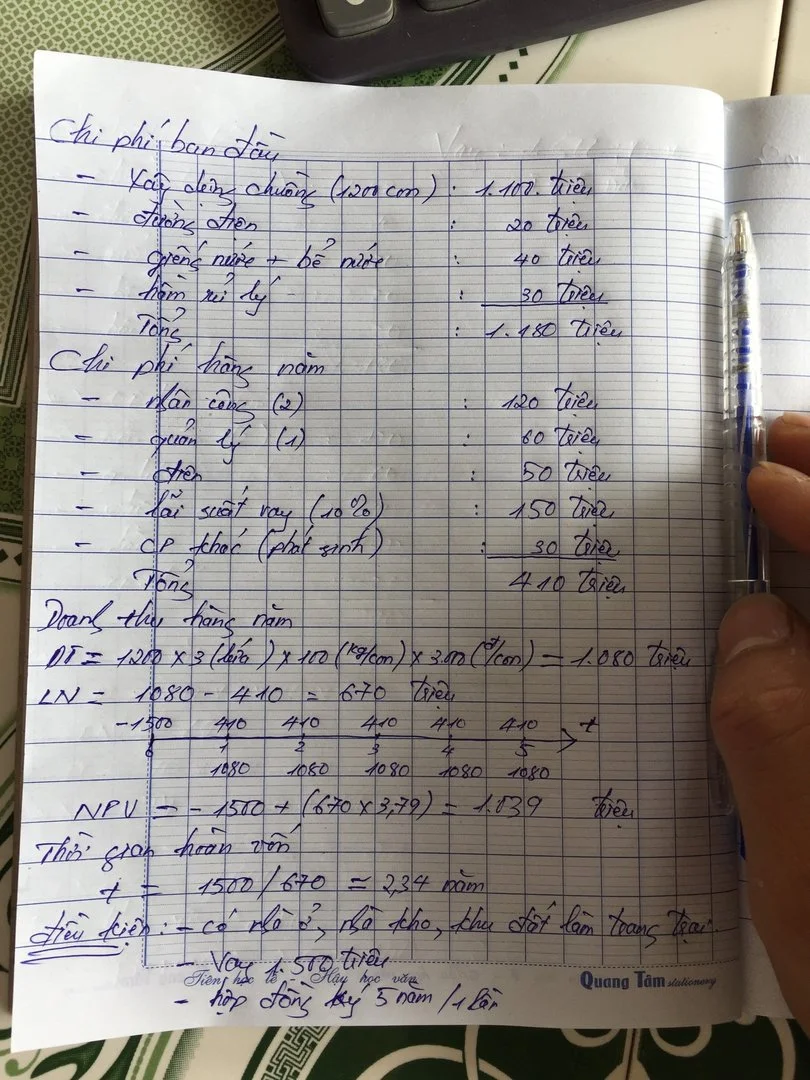 Chi phí ban đầu
- Xây dựng chuồng (1200 con) : 1.100. triệu
- đường điện : 20 triệu
- giếng nước + bể nước : 40 triệu
- hầm xử lý : 30 triệu
Tổng : 1.180 triệu
Chi phí hàng năm
- nhân công (2) : 120 triệu
- quản lý (1) : 60 triệu
- điện : 50 triệu
- lãi suất vay (10%) : 150 triệu
- CP khác (phát sinh) : 30 triệu
Tổng 410 triệu
Doanh thu hàng năm
DT = 1200 x 3 (lứa) x 100 (kg/con) x 3.000 (đ/con) = 1.080 triệu
LN = 1080 - 410 = 670 triệu
-1500 410 410 410 410 410 t
0 1 2 3 4 5
1080 1080 1080 1080 1080
NPV = - 1500 + (670 x 3,79) = 1.039 triệu
Thời gian hoàn vốn
t = 1500 / 670 = 2,34 năm
điều kiện: - có nhà ở, nhà kho, khu đất làm trang trại.
- Vay 1.500 triệu
Tiên học lễ - Hậu học văn
Quang Tâm stationery
- hợp đồng ký 5 năm / 1 lần